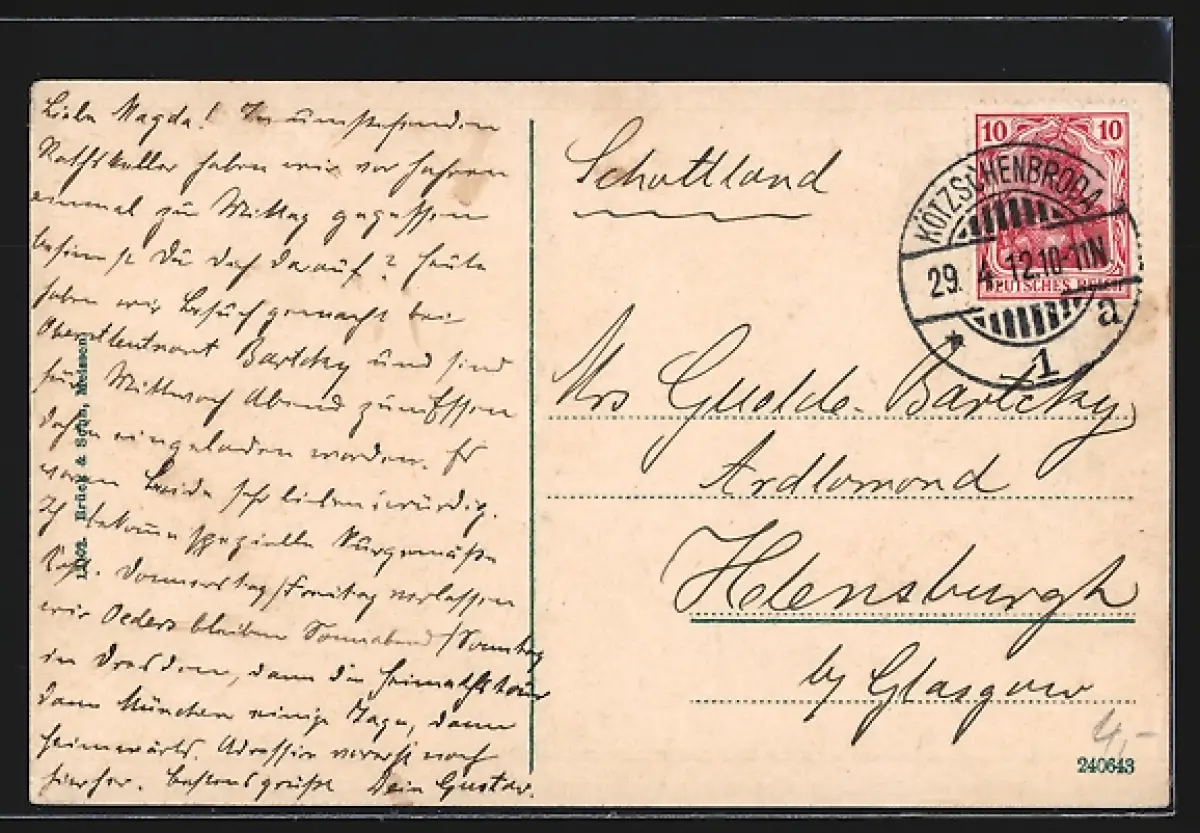 Liebe Magda! Im umstehenden
Rathskeller haben wir vor Jahren
einmal zu Mittag gegessen
besinnst Du Dich darauf? Heute
haben wir Besuch gemacht bei
Oberstleutnant Bartcky und sind
für Mittwoch Abend zum Essen
dahin eingeladen worden. Es
waren Beide sehr liebenswürdig.
Ich bekomme spezielle kurgemäße
Kost. Donnerstag/Freitag verlassen
wir Oeders bleiben Sonnabend/Sonntag
in Dresden, dann die
dann München einige Tage, dann
heimwärts. Adressire vorerst noch
hierher. Bestens grüßt Dein Gustav.
11002. Brück & Sohn, Meissen
Schottland
10 10
DEUTSCHES REICH
KÖTZSCHENBRODA
29. 4. 12. 10-11N
* 1 a
Mrs Guelde-Bartcky
Ardlomond
Helensburgh
by Glasgow
4,-
240643